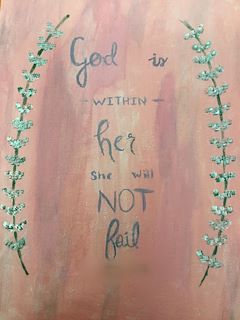 God is
- WITHIN -
her
She will
NOT
fail